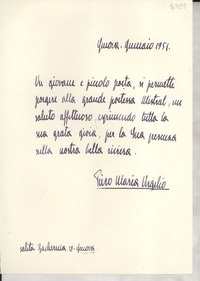 Genova. Gennaio 1951.
Un giovane e piccolo poeta, si permette
porgere alla grande poetessa Mistral, un
saluto affettuoso, esprimendo tutta la
sua grata gioia, per la Sua permanenza
nella nostra bella riviera.
Piero Maria Virgilio
salita 10 - Genova